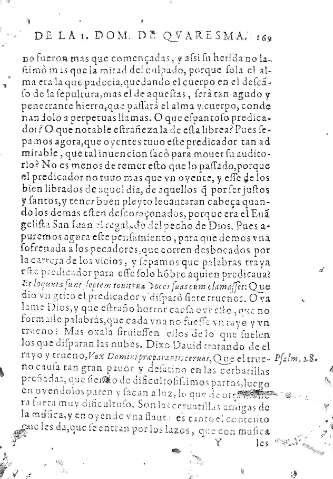 DE LA I. DOM. DE QVARESMA. 169
no fueron mas que començadas, y assi su herida no la-
stimò mas que la mitad del culpado, porque sola el al-
ma era la que padecia, quedando el cuerpo en el descã-
so de la sepultura, mas el de aquestas, serà tan agudo y
penetrante hierro, que passarà el alma y cuerpo, conde
nandolo a perpetuas llamas. O que espantoso predica-
dor? O que notable estrañeza la de esta librea? Pues se-
pamos agora, que oyentes tuuo este predicador tan ad
mirable, que tal inuencion sacò para mouer su audito-
rio? No es menos de temer esto que lo passado, porque
el predicador no tuuo mas que vn oyente, y esse de los
bien librados de aquel dia, de aquellos q̃ por ser justos
y santos, y tener buen pleyto leuantaran cabeça quan-
do los demas esten descoraçonados, porque era el Euã-
gelista San Iuan el regalado del pecho de Dios. Pues a-
puremos agora este pensamiento, para que demos vna
sofrenada a los pecadores, que corren desbocados por
la carrera de los vicios, y sepamos que palabras traya
este predicador para esse solo hõbre aquien predicaua?
Et loquuta sunt septem tonitrua voces suas cum clamasset: Que
dio vn grito el predicador y disparò siete truenos. O va
lame Dios, y que estraño horror causa
formasse palabras, que cada vna no fuesse vn rayo y vn
trueno? Mas oxala siruiessen ellos de lo que suelen
los que disparan las nubes. Dixo Dauid tratando de el
rayo y trueno, Vox Domini præparantis ceruos, Que el true- Psalm. 28.
no causa tan gran pauor y desatino en las ceruatillas
preñadas, que siendo de dificultosissimos partos, luego
en oyendolos paren y sacan a luz, lo que de
ra fuera muy dificultoso. Son las ceruatillas amigas de
la musica, y en oyendo vna flauta es tanto el contento
que les da, que se entran por los lazos, que con musica
Y les